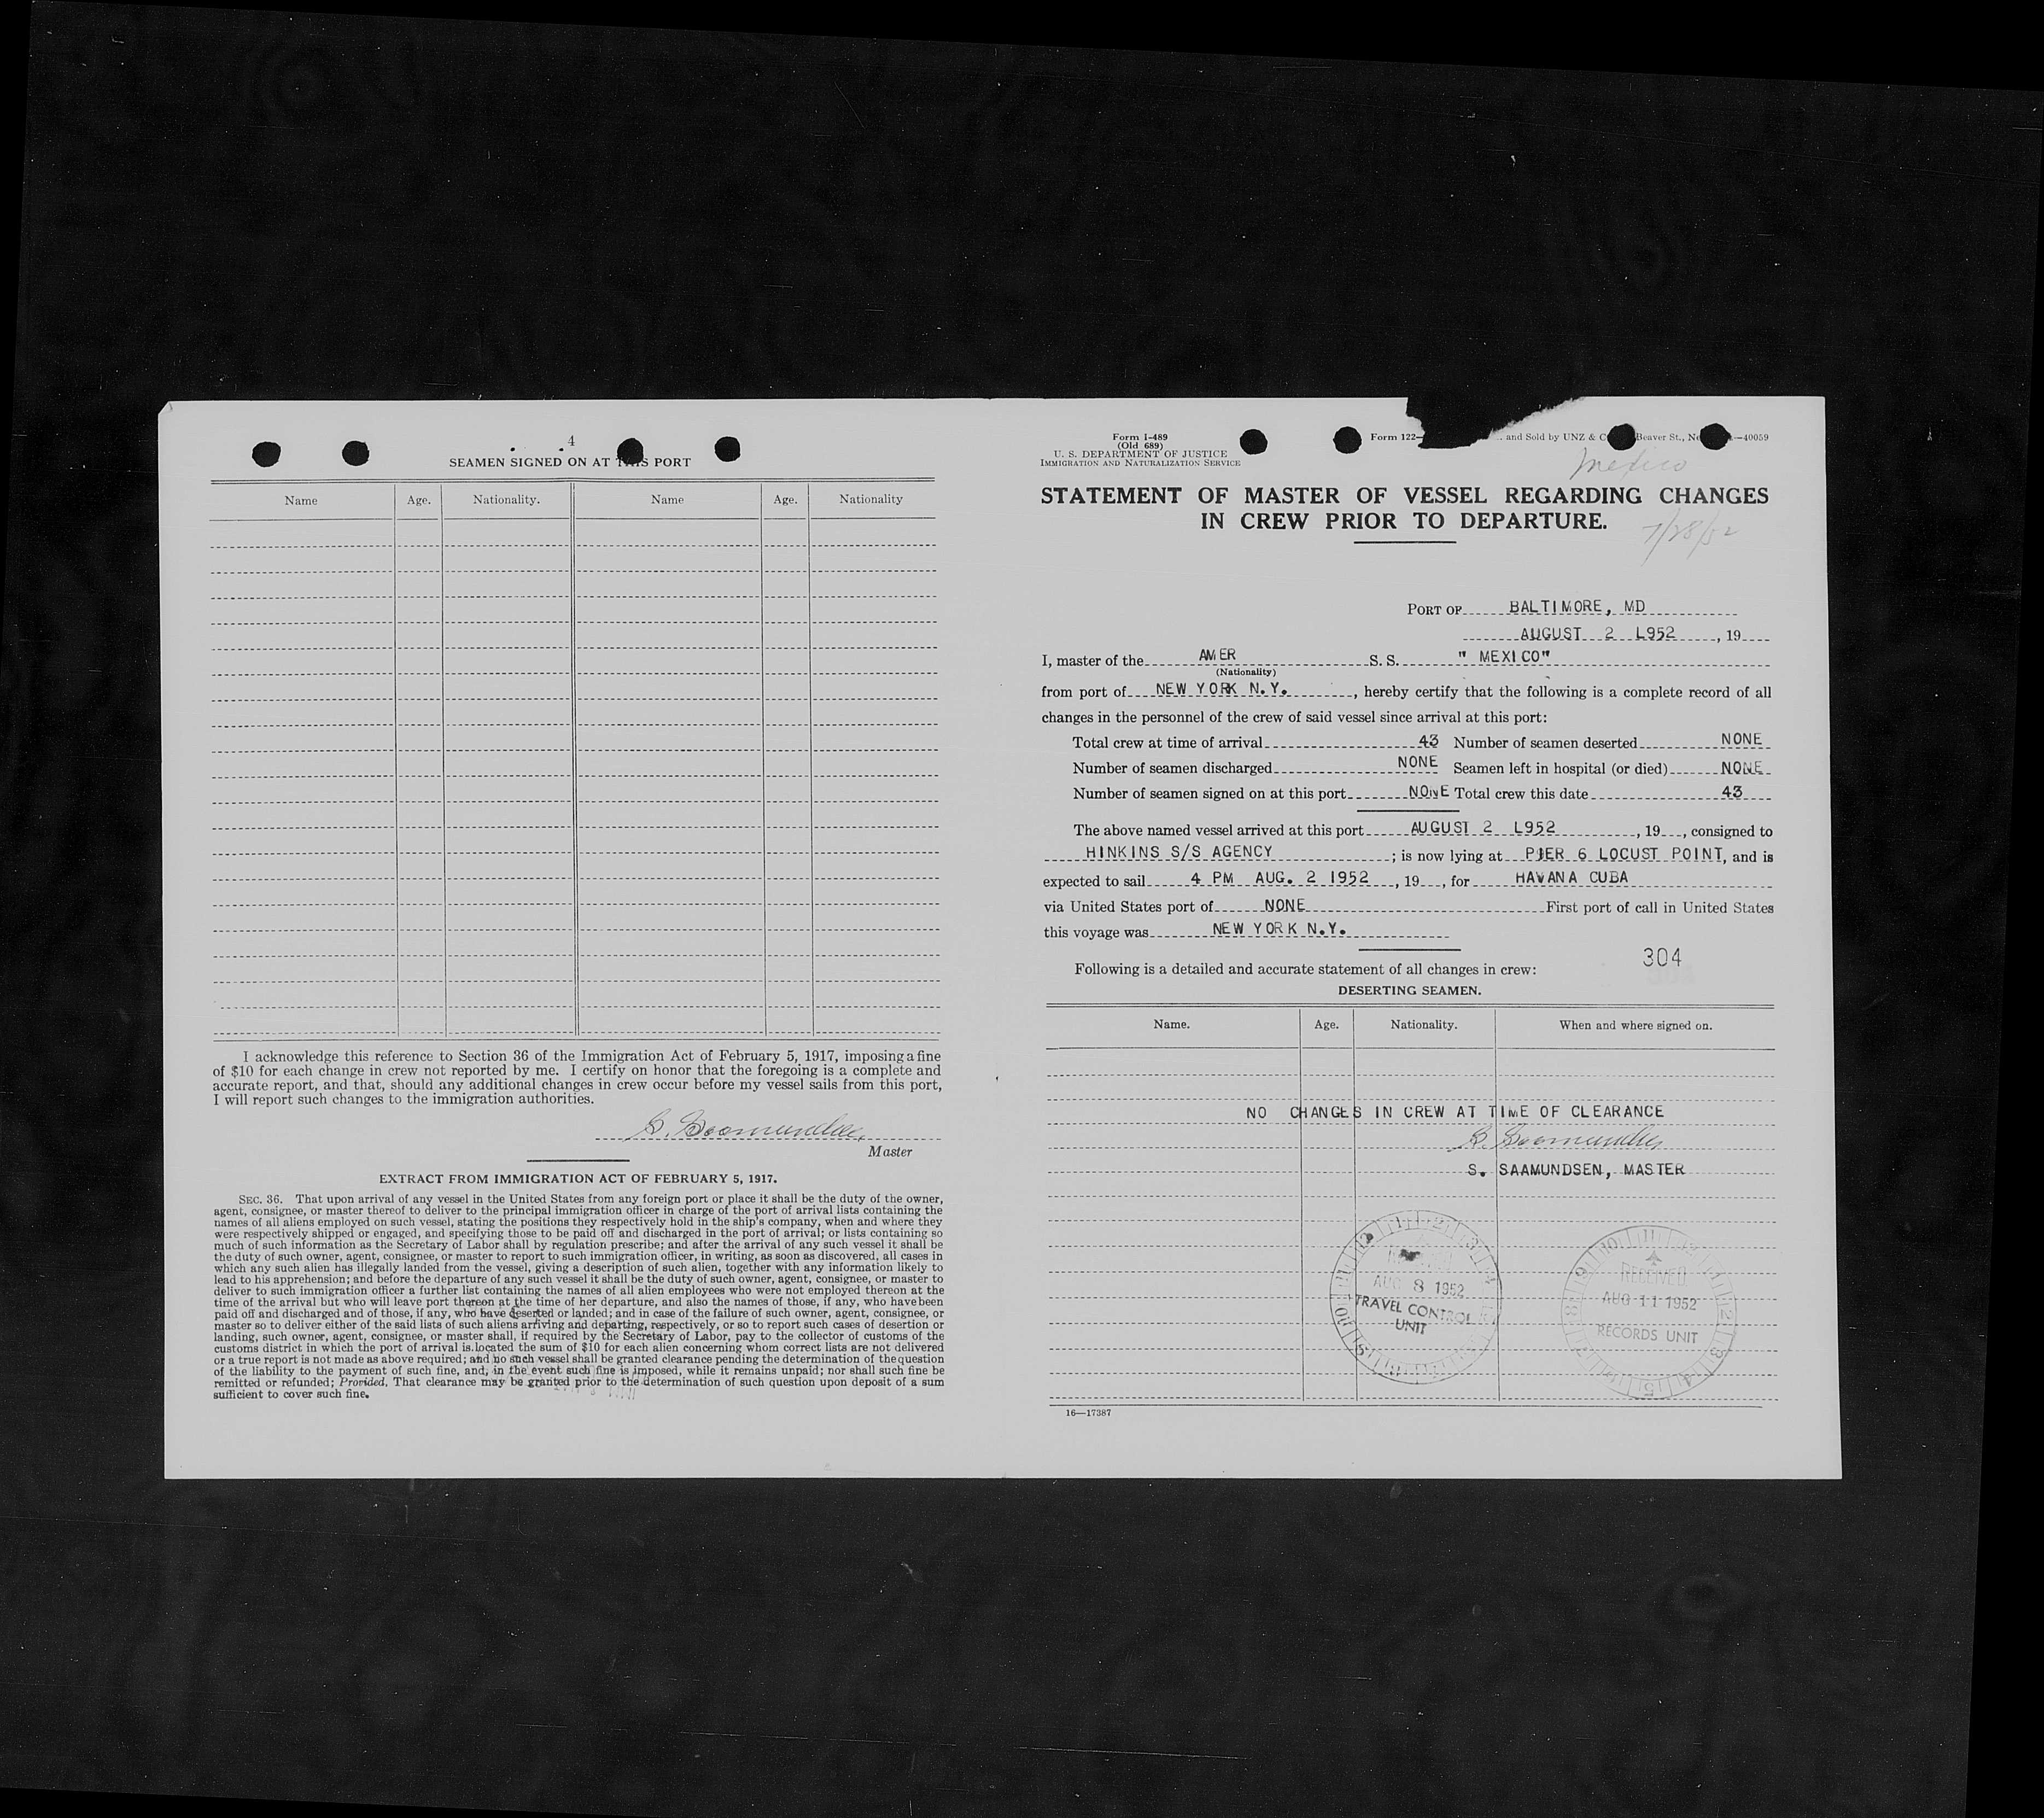 4
SEAMEN SIGNED ON AT THIS PORT
Name Age. Nationality. Name Age. Nationality
I acknowledge this reference to Section 36 of the Immigration Act of February 5, 1917, imposing a fine
of $10 for each change in crew not reported by me. I certify on honor that the foregoing is a complete and
accurate report, and that, should any additional changes in crew occur before my vessel sails from this port,
I will report such changes to the immigration authorities.
Master
EXTRACT FROM IMMIGRATION ACT OF FEBRUARY 5, 1917.
SEC. 36. That upon arrival of any vessel in the United States from any foreign port or place it shall be the duty of the owner,
agent, consignee, or master thereof to deliver to the principal immigration officer in charge of the port of arrival lists containing the
names of all aliens employed on such vessel, stating the positions they respectively hold in the ship's company, when and where they
were respectively shipped or engaged, and specifying those to be paid off and discharged in the port of arrival; or lists containing so
much of such information as the Secretary of Labor shall by regulation prescribe; and after the arrival of any such vessel it shall be
the duty of such owner, agent, consignee, or master to report to such immigration officer, in writing, as soon as discovered, all cases in
which any such alien has illegally landed from the vessel, giving a description of such alien, together with any information likely to
lead to his apprehension; and before the departure of any such vessel it shall be the duty of such owner, agent, consignee, or master to
deliver to such immigration officer a further list containing the names of all alien employees who were not employed thereon at the
time of the arrival but who will leave port thereon at the time of her departure, and also the names of those, if any, who have been
paid off and discharged and of those, if any, who have deserted or landed; and in case of the failure of such owner, agent, consignee, or
master so to deliver either of the said lists of such aliens arriving and departing, respectively, or so to report such cases of desertion or
landing, such owner, agent, consignee, or master shall, if required by the Secretary of Labor, pay to the collector of customs of the
customs district in which the port of arrival is located the sum of $10 for each alien concerning whom correct lists are not delivered
or a true report is not made as above required; and no such vessel shall be granted clearance pending the determination of the question
of the liability to the payment of such fine, and, in the event such fine is imposed, while it remains unpaid; nor shall such fine be
remitted or refunded; Provided, That clearance may be granted prior to the determination of such question upon deposit of a sum
sufficient to cover such fine.
Form I-489
(Old 689)
U. S. DEPARTMENT OF JUSTICE
IMMIGRATION AND NATURALIZATION SERVICE
Form 122— and Sold by UNZ & C Beaver St., —40059
Mexico
STATEMENT OF MASTER OF VESSEL REGARDING CHANGES
IN CREW PRIOR TO DEPARTURE.
7/28/52
PORT OF BALTIMORE, MD
AUGUST 2 L952, 19
I, master of the AMER S. S. " MEXICO"
(Nationality)
from port of NEW YORK N.Y., hereby certify that the following is a complete record of all
changes in the personnel of the crew of said vessel since arrival at this port:
Total crew at time of arrival 43 Number of seamen deserted NONE
Number of seamen discharged NONE Seamen left in hospital (or died) NONE
Number of seamen signed on at this port NONE Total crew this date 43
The above named vessel arrived at this port AUGUST 2 L952, 19, consigned to
HINKINS S/S AGENCY; is now lying at PIER 6 LOCUST POINT, and is
expected to sail 4 PM AUG. 2 1952, 19, for HAVANA CUBA
via United States port of NONE First port of call in United States
this voyage was NEW YORK N.Y.
304
Following is a detailed and accurate statement of all changes in crew:
DESERTING SEAMEN.
Name. Age. Nationality. When and where signed on.
NO CHANGES IN CREW AT TIME OF CLEARANCE
S. SAAMUNDSEN, MASTER
AUG 8 1952
TRAVEL CONTROL
UNIT
RECEIVED
AUG 11 1952
RECORDS UNIT
16—17387